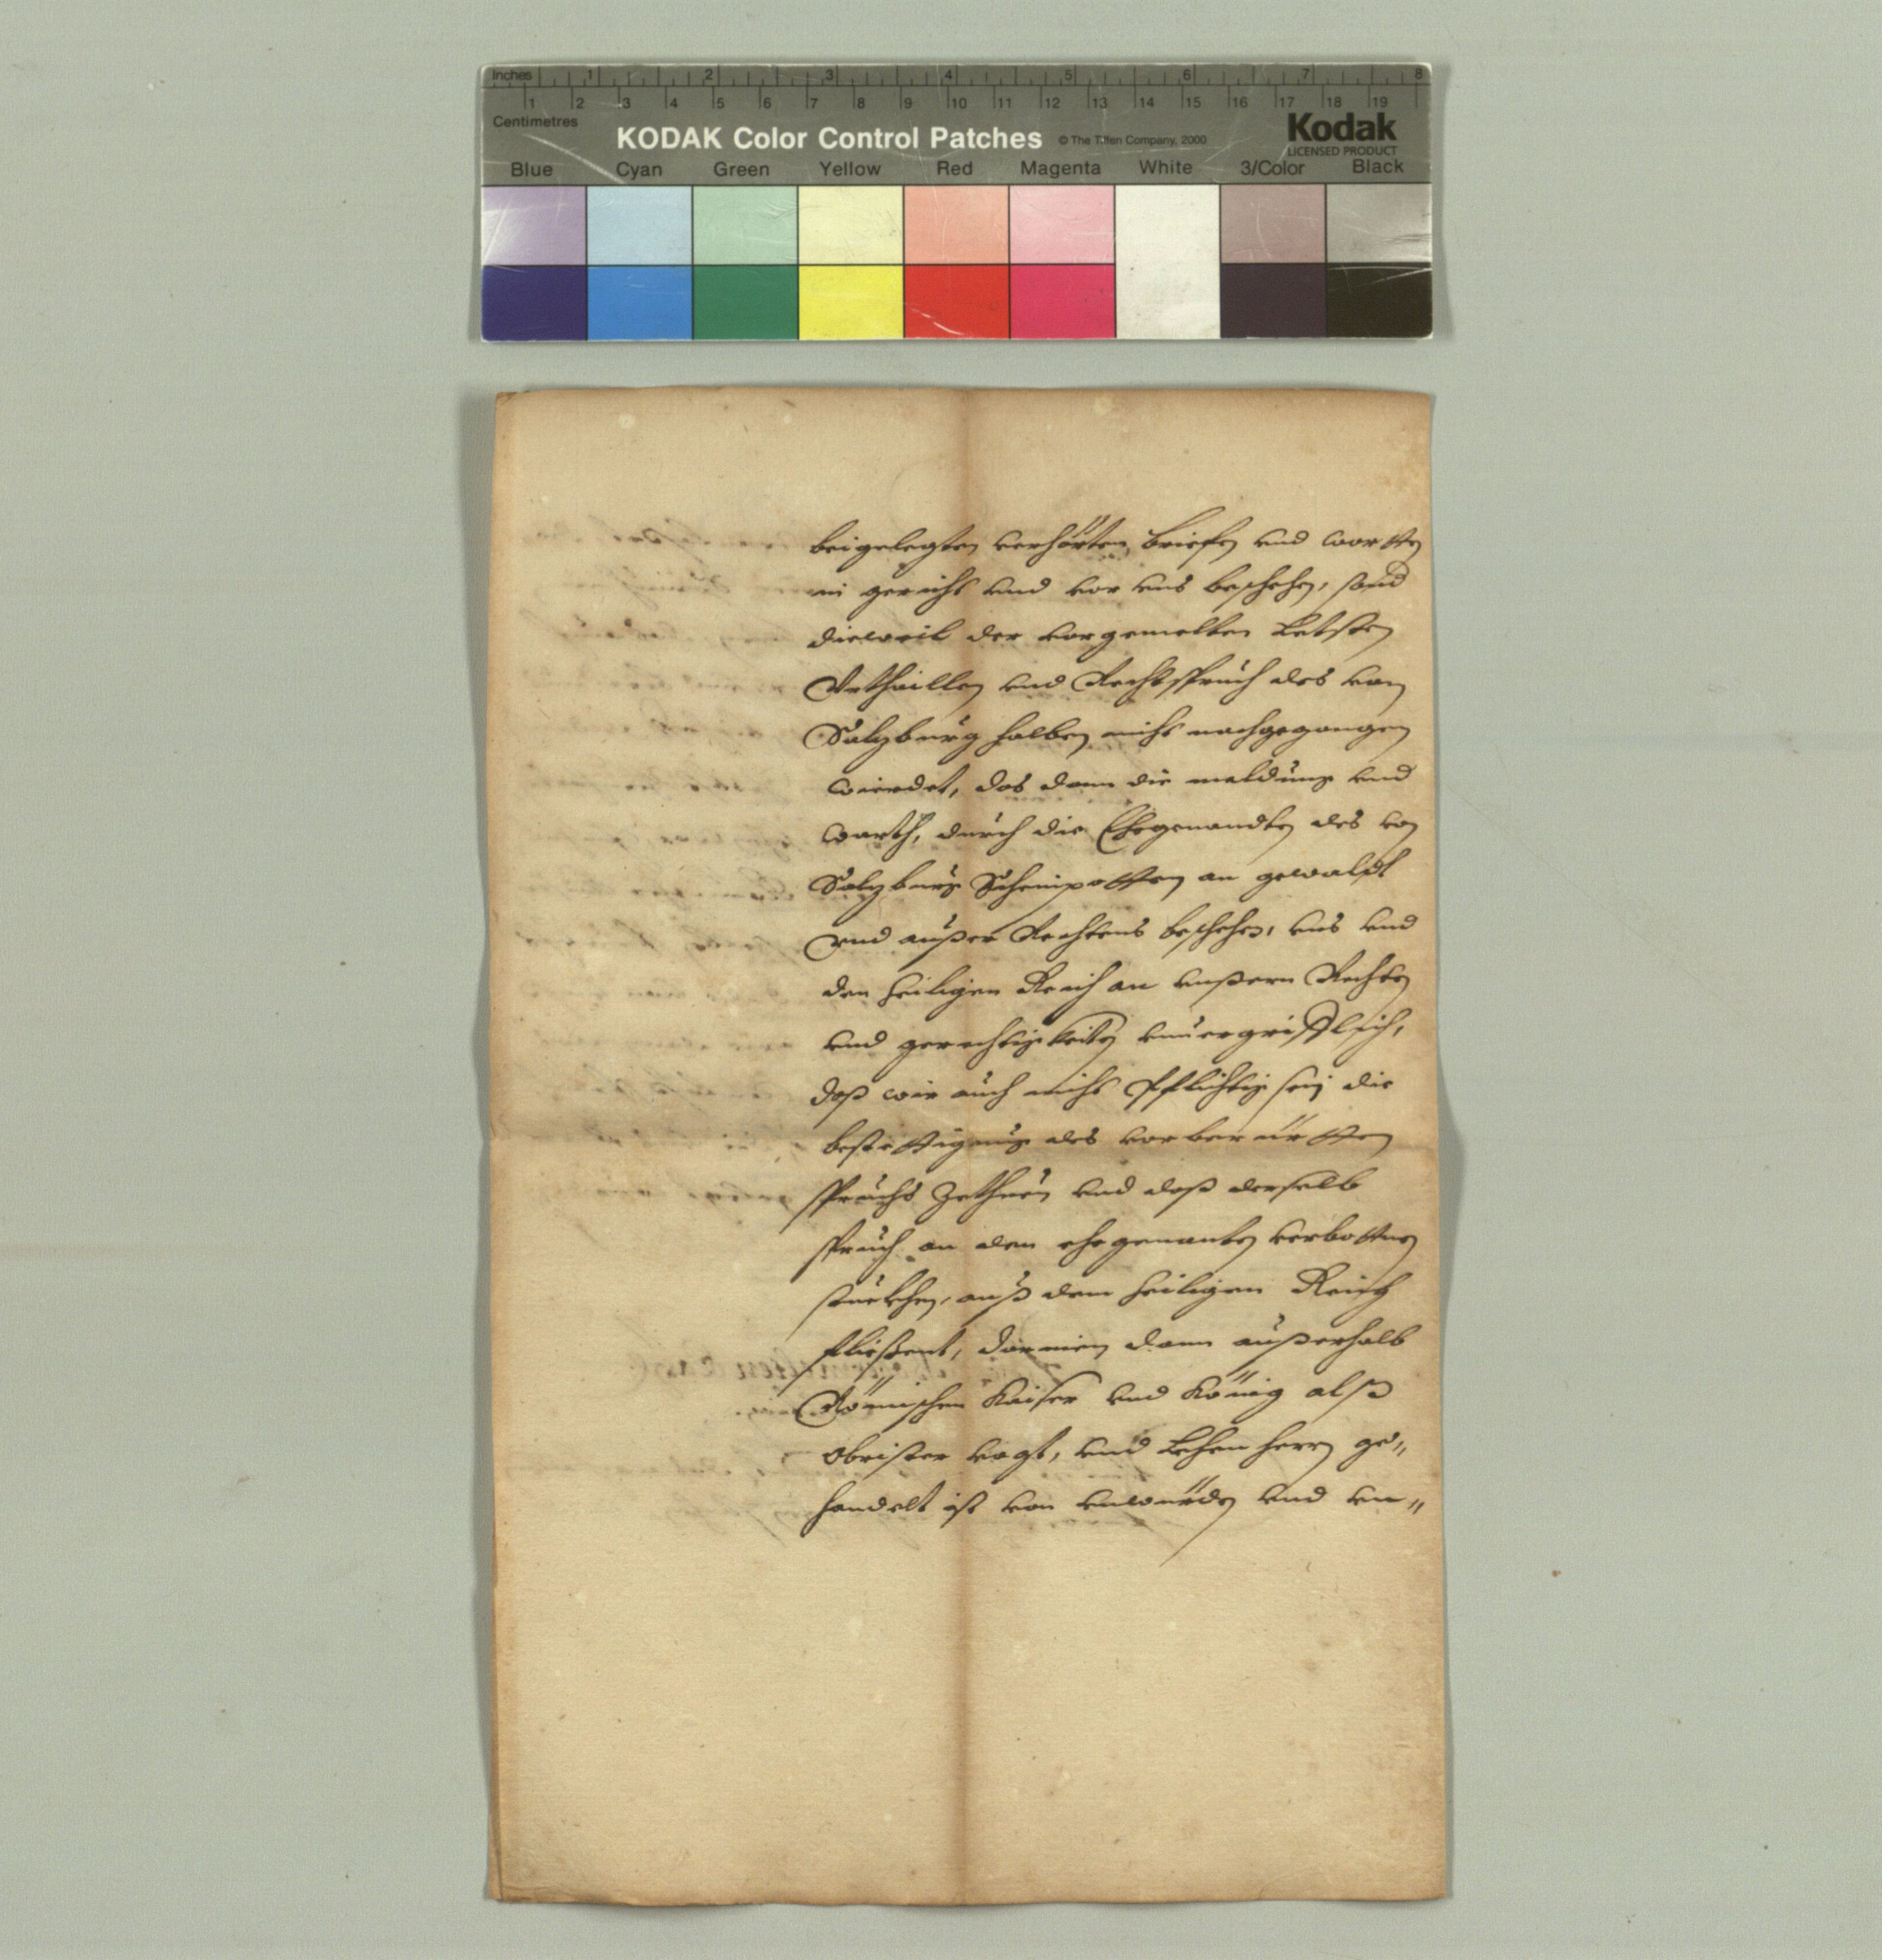 Inches 1 2 3 4 5 6 7 8
1 2 3 4 5 6 7 8 9 10 11 12 13 14 15 16 17 18 19
Centimetres
KODAK Color Control Patches © The Tiffen Company, 2000 Kodak
LICENSED PRODUCT
Blue Cyan Green Yellow Red Magenta White 3/Color Black
beigelegten verhörten briefen vnd wortten
in gericht vnd vor vns beschehen, sond
dieweil der vorgemelten Letsten
Vrthaillen vnd Rechtspruch des von
Salzburg halben nicht nachgegangen
wierdet, das dann die meldung vnd
warth, durch die Ehegenandten des von
Salzburg an gewaldt
vnd außer Rechtens beschehen, vns vnd
den heiligen Reich an vnßern Rechten
vnd gerechtigkeiten vnuergrifflich,
daß wir auch nicht Pflichtig seij die
bestettigung des vorberürtten
spruchs zethuen vnd daß derselb
spruch an den ehegenanten verbottnen
stuckhen, auß dem heiligen Reich
fließent, darinen dann außerhalb
Römischen Kaiser vnd König alß
obrister vogt, vnd Lehenherrn ge„
handelt ist von vnwürden vnd vn„